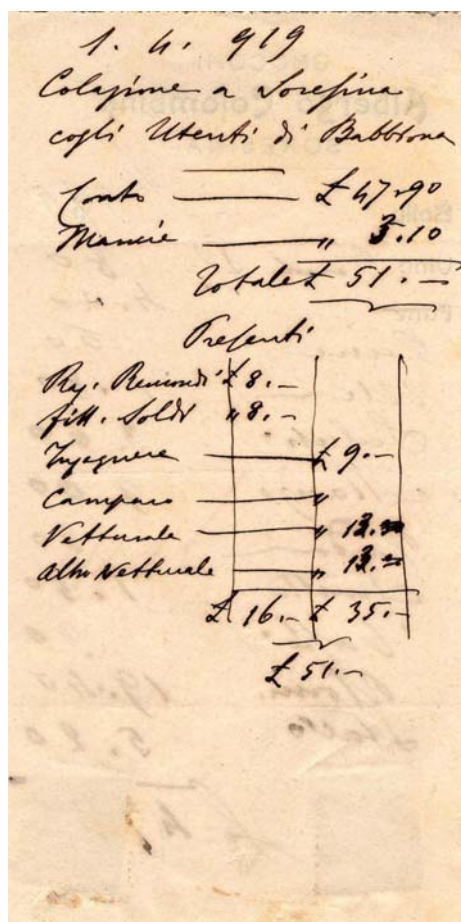 1. 4. 919
Colazione a Soresina
cogli Utenti di Babbiona
Conto £ 47.90
Mancie " 3.10
Totale £ 51.—
Presenti
Rag. Remondi £ 8.—
fitt. Soldi " 8.—
Ingegnere £ 9.—
Camparo "
Vetturale "
Altro Vetturale "
£ 16.— £ 35.—
£ 51.—